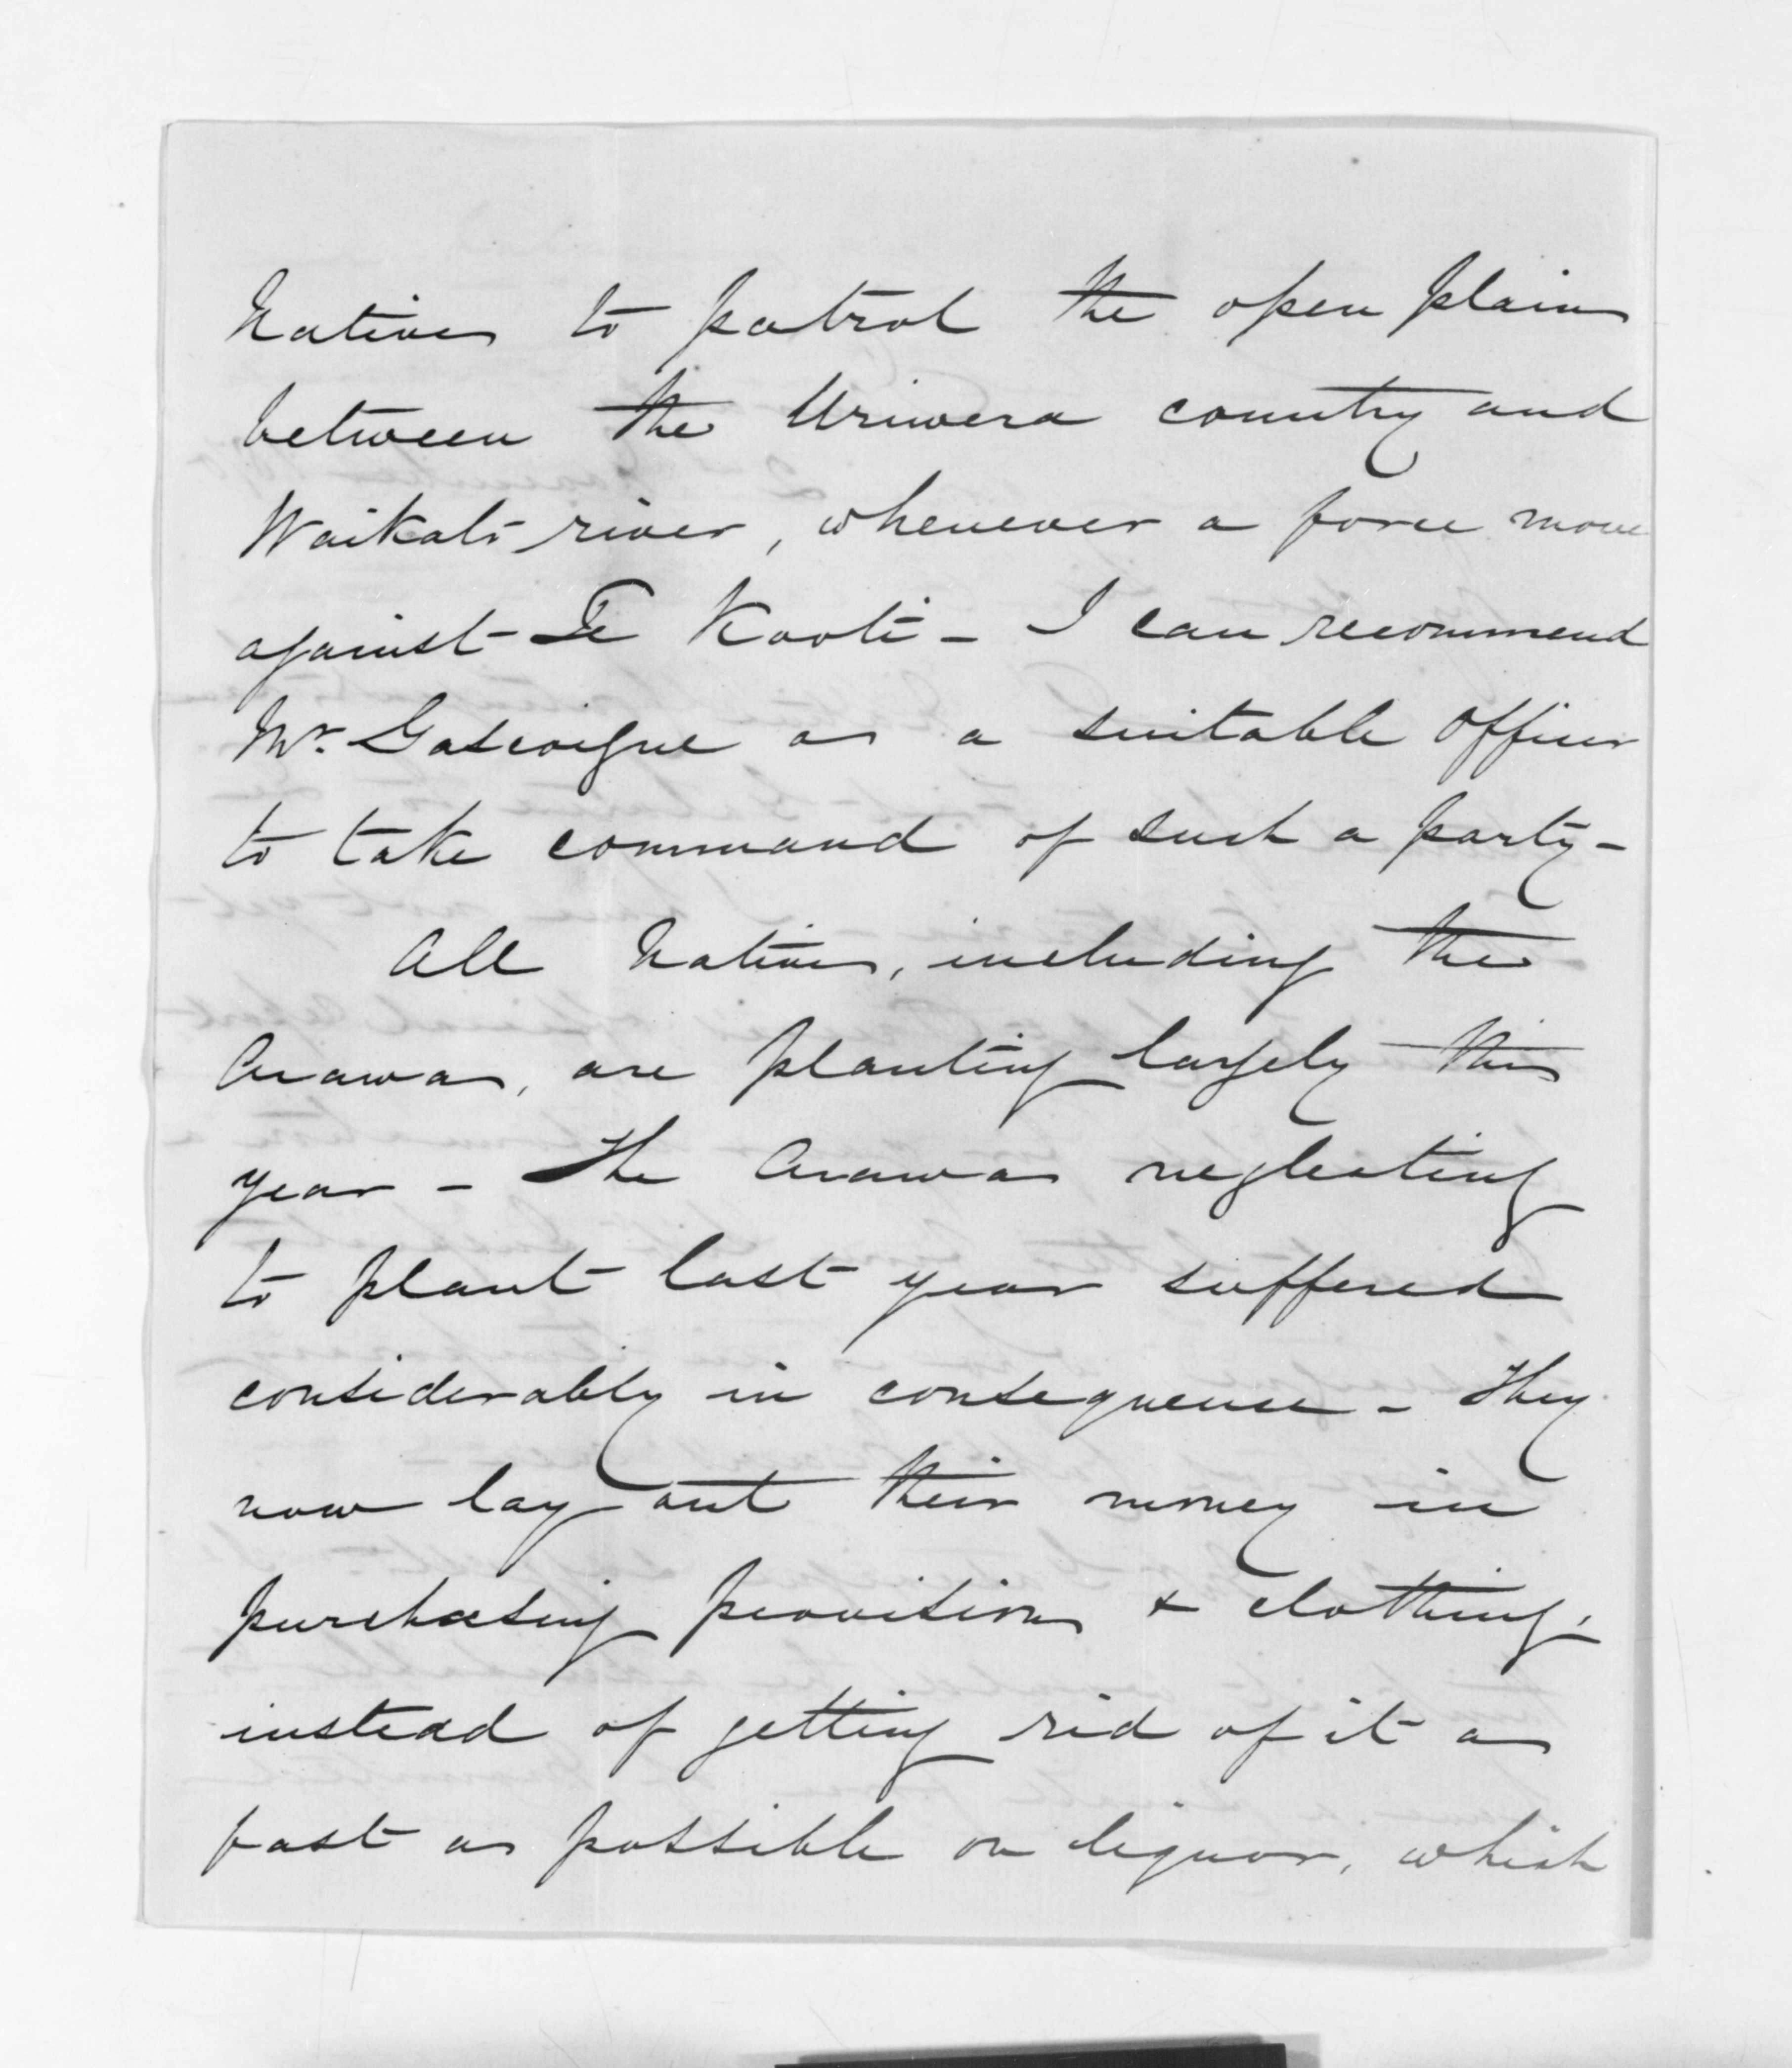 Natives to patrol the open plains
between the Uriwera country and
Waikato river, whenever a force move
against Te Kooti - I can recommend
Mr. Gascoigne as a suitable Officer
to take command of such a party -
All Natives, including the
Arawas, are planting largely this
year - The Arawas neglecting
to plant last year suffered
considerably in consequence - They
now lay out their money in
purchasing provisions & clothing,
instead of getting rid of it as
fast as possible on liquor, which